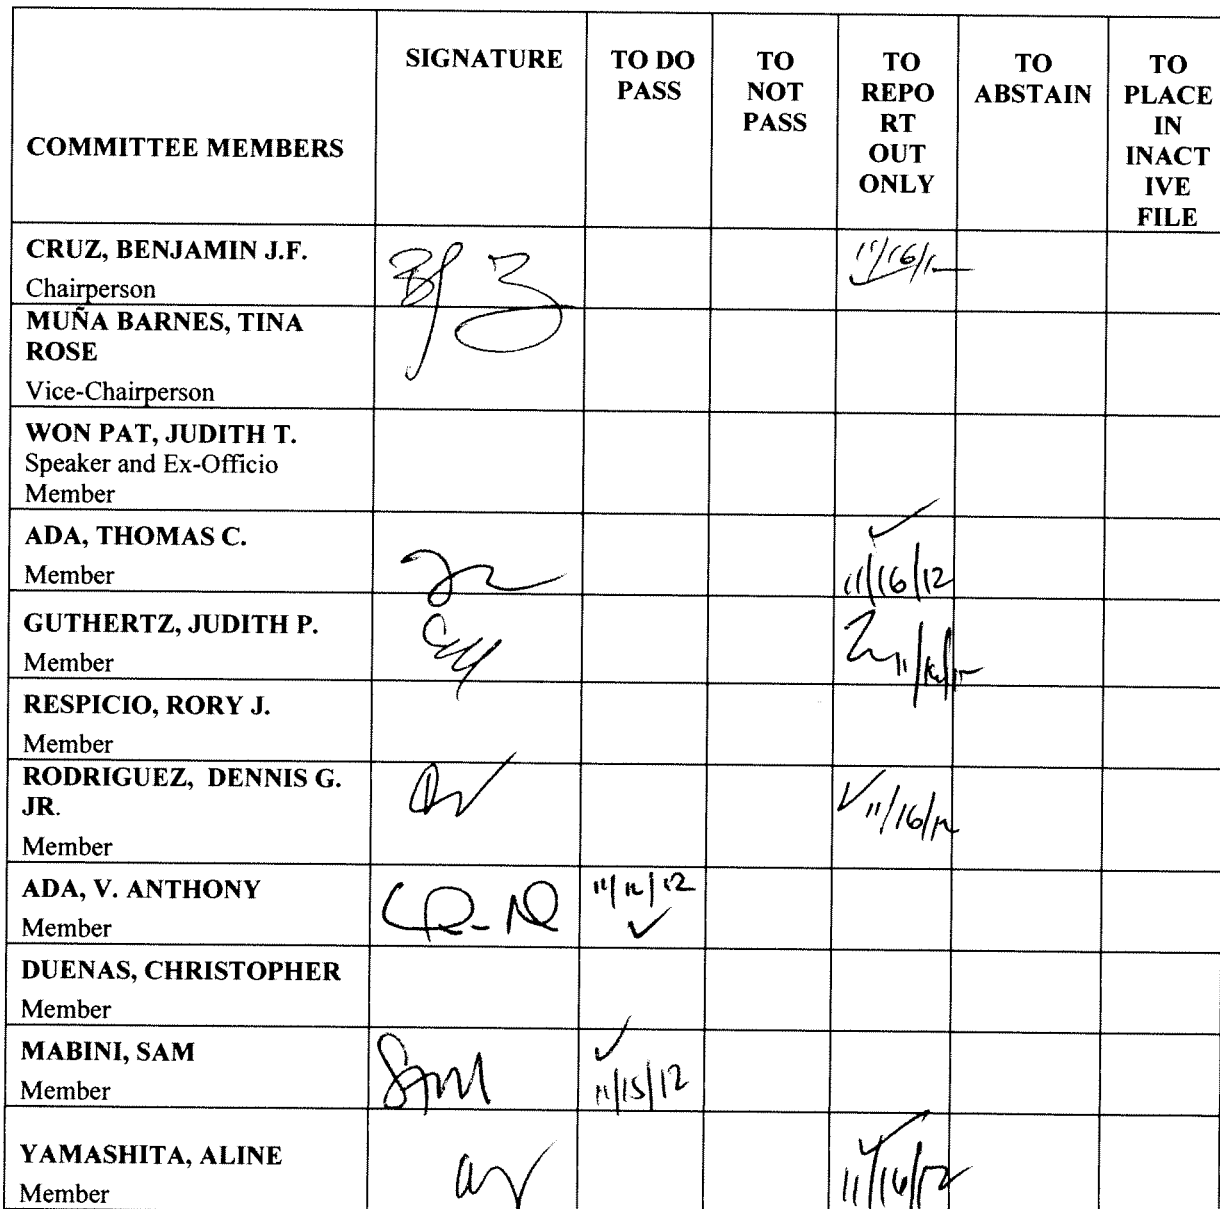 COMMITTEE MEMBERS
SIGNATURE
TO DO
PASS
TO
NOT
PASS
TO
REPO
RT
OUT
ONLY
TO
ABSTAIN
TO
PLACE
IN
INACT
IVE
FILE
CRUZ, BENJAMIN J.F.
Chairperson
11/16/12
MUÑA BARNES, TINA
ROSE
Vice-Chairperson
WON PAT, JUDITH T.
Speaker and Ex-Officio
Member
ADA, THOMAS C.
Member
11/16/12
GUTHERTZ, JUDITH P.
Member
RESPICIO, RORY J.
Member
RODRIGUEZ, DENNIS G.
JR.
Member
✓ 11/16/12
ADA, V. ANTHONY
Member
✓
DUENAS, CHRISTOPHER
Member
MABINI, SAM
Member
Sam
✓
11/15/12
YAMASHITA, ALINE
Member
✓
11/16/12